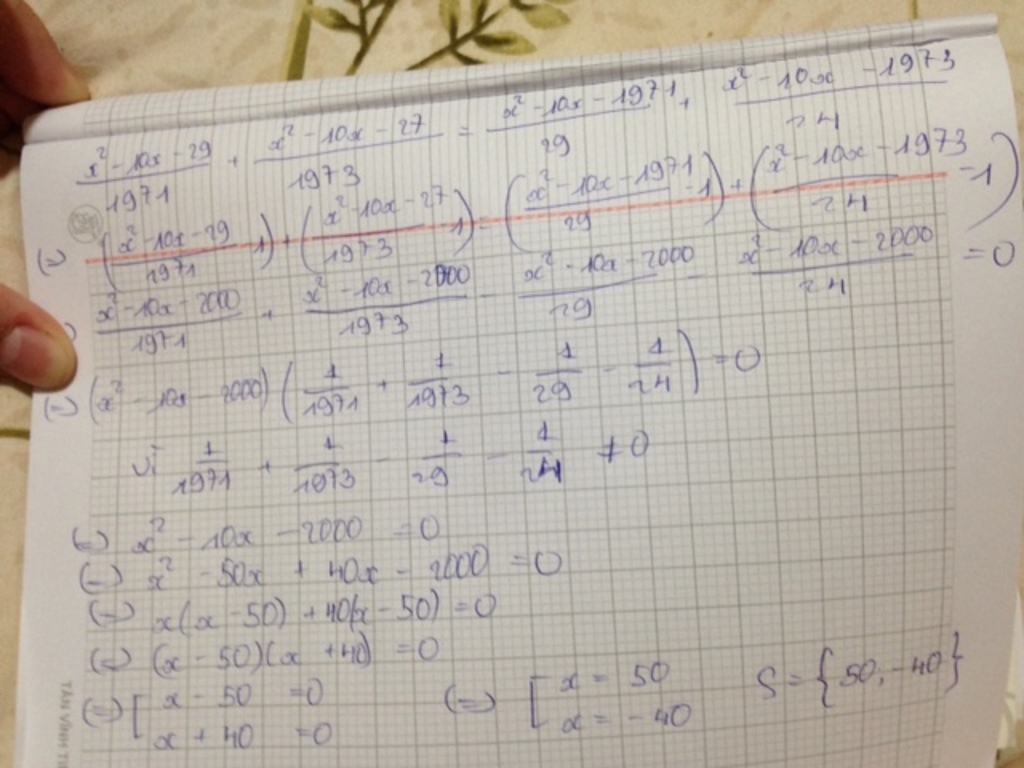 x² - 10x - 29 / 1971 + x² - 10x - 27 / 1973 = x² - 10x - 1971 / 29 + x² - 10x - 1973 / 24
(=) (x² - 10x - 29 / 1971 - 1) + (x² - 10x - 27 / 1973 - 1) = (x² - 10x - 1971 / 29 - 1) + (x² - 10x - 1973 / 24 - 1)
x² - 10x - 2000 / 1971 + x² - 10x - 2000 / 1973 - x² - 10x - 2000 / 29 - x² - 10x - 2000 / 24 = 0
(=) (x² - 10x - 2000) (1 / 1971 + 1 / 1973 - 1 / 29 - 1 / 24) = 0
vì 1 / 1971 + 1 / 1973 - 1 / 29 - 1 / 24 ≠ 0
(=) x² - 10x - 2000 = 0
(=) x² - 50x + 40x - 2000 = 0
(=) x(x - 50) + 40(x - 50) = 0
(=) (x - 50)(x + 40) = 0
(=) [ x - 50 = 0 (=) [ x = 50 S = {50; -40}
x + 40 = 0 x = -40